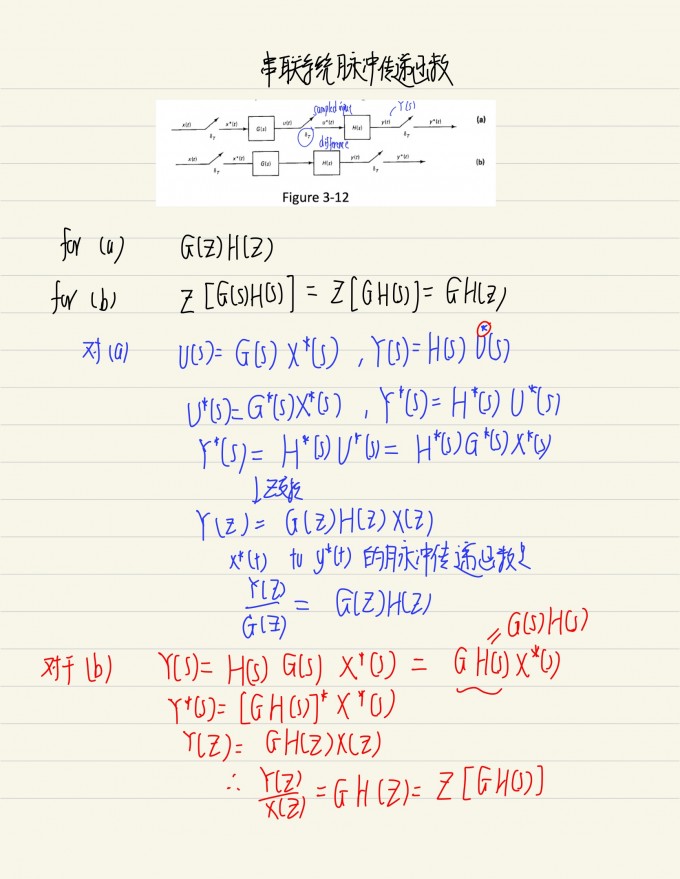 串联系统脉冲传递函数
sampled input Y(s)
x(t) x*(t) G(s) u(t) u*(t) H(s) y(t) y*(t) (a)
δT δT δT
difference
x(t) x*(t) G(s) H(s) y(t) y*(t) (b)
δT δT
Figure 3-12
for (a) G(Z)H(Z)
for (b) Z[G(s)H(s)] = Z[GH(s)] = GH(Z)
对(a) U(s) = G(s) X*(s) , Y(s) = H(s) U*(s)
U*(s) = G*(s)X*(s) , Y*(s) = H*(s) U*(s)
Y*(s) = H*(s)U*(s) = H*(s)G*(s)X*(s)
↓Z变换
Y(Z) = G(Z)H(Z)X(Z)
x*(t) to y*(t) 的脉冲传递函数是
Y(Z)/G(Z) = G(Z)H(Z)
= G(s)H(s)
对于(b) Y(s) = H(s) G(s) X*(s) = GH(s)X*(s)
Y*(s) = [GH(s)]* X*(s)
Y(Z) = GH(Z)X(Z)
∴ Y(Z)/X(Z) = GH(Z) = Z[GH(s)]